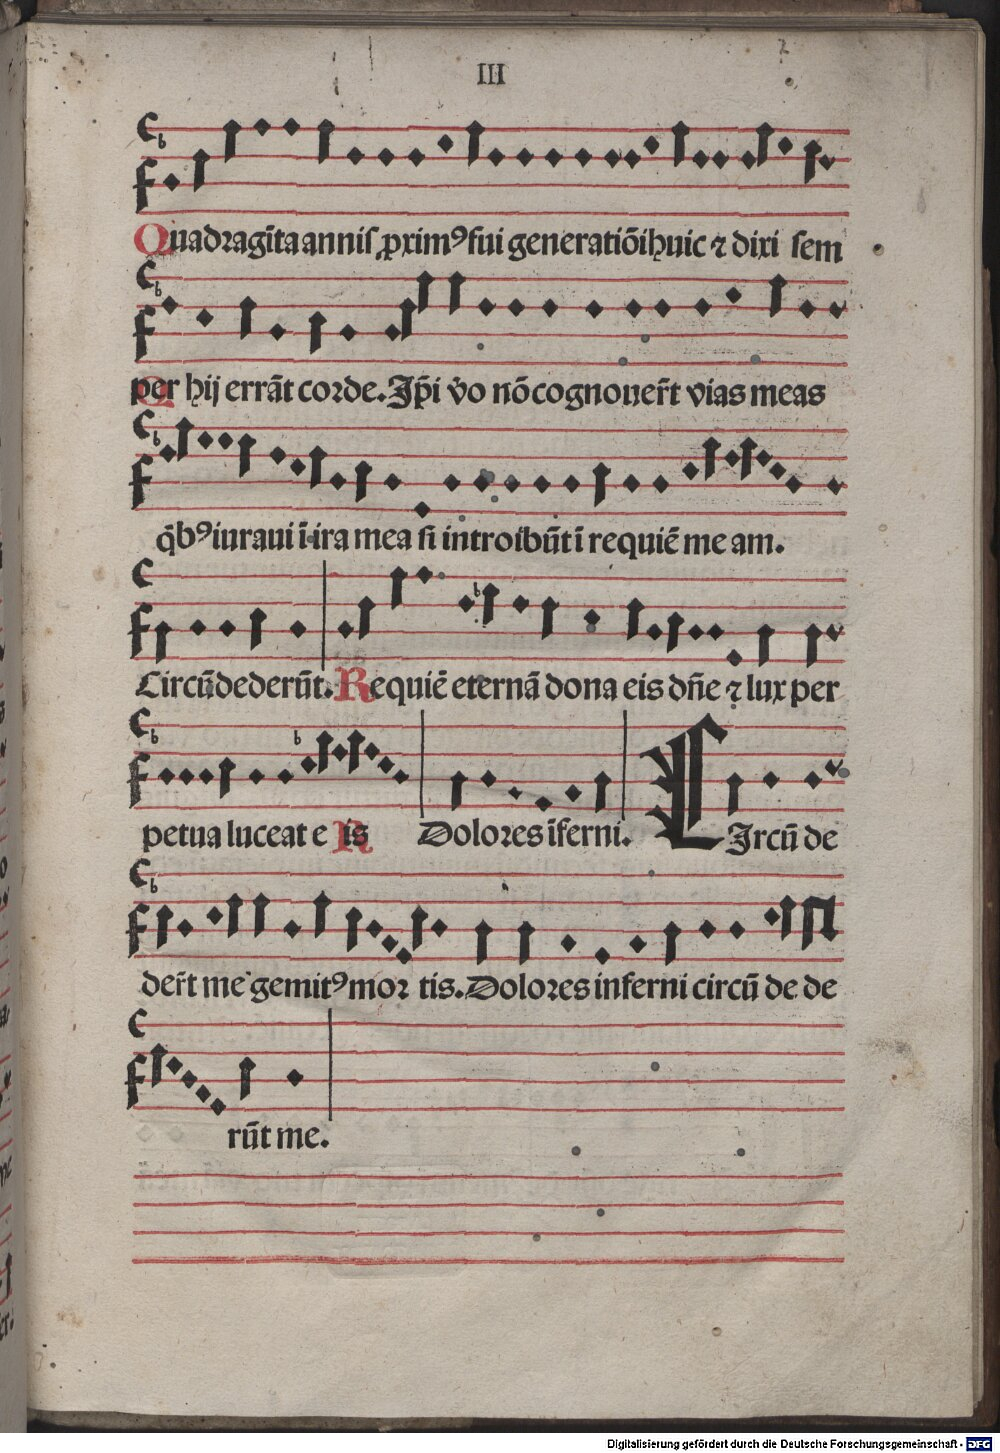 III
Quadragīta annis ꝓximꝰ fui generatiōi huic ⁊ dixi sem
per hij errāt corde. Ip̄i v̄o nō cognouer̄t vias meas
q̄bꝰ iuraui ī ira mea si introibūt ī requiē me am.
Circūdederūt. Requiē eternā dona eis dn̄e ⁊ lux per
petua luceat e is Dolores īferni. CIrcū de
der̄t me gemitꝰ mor tis. Dolores inferni circū de de
rūt me.
Digitalisierung gefördert durch die Deutsche Forschungsgemeinschaft - DFG